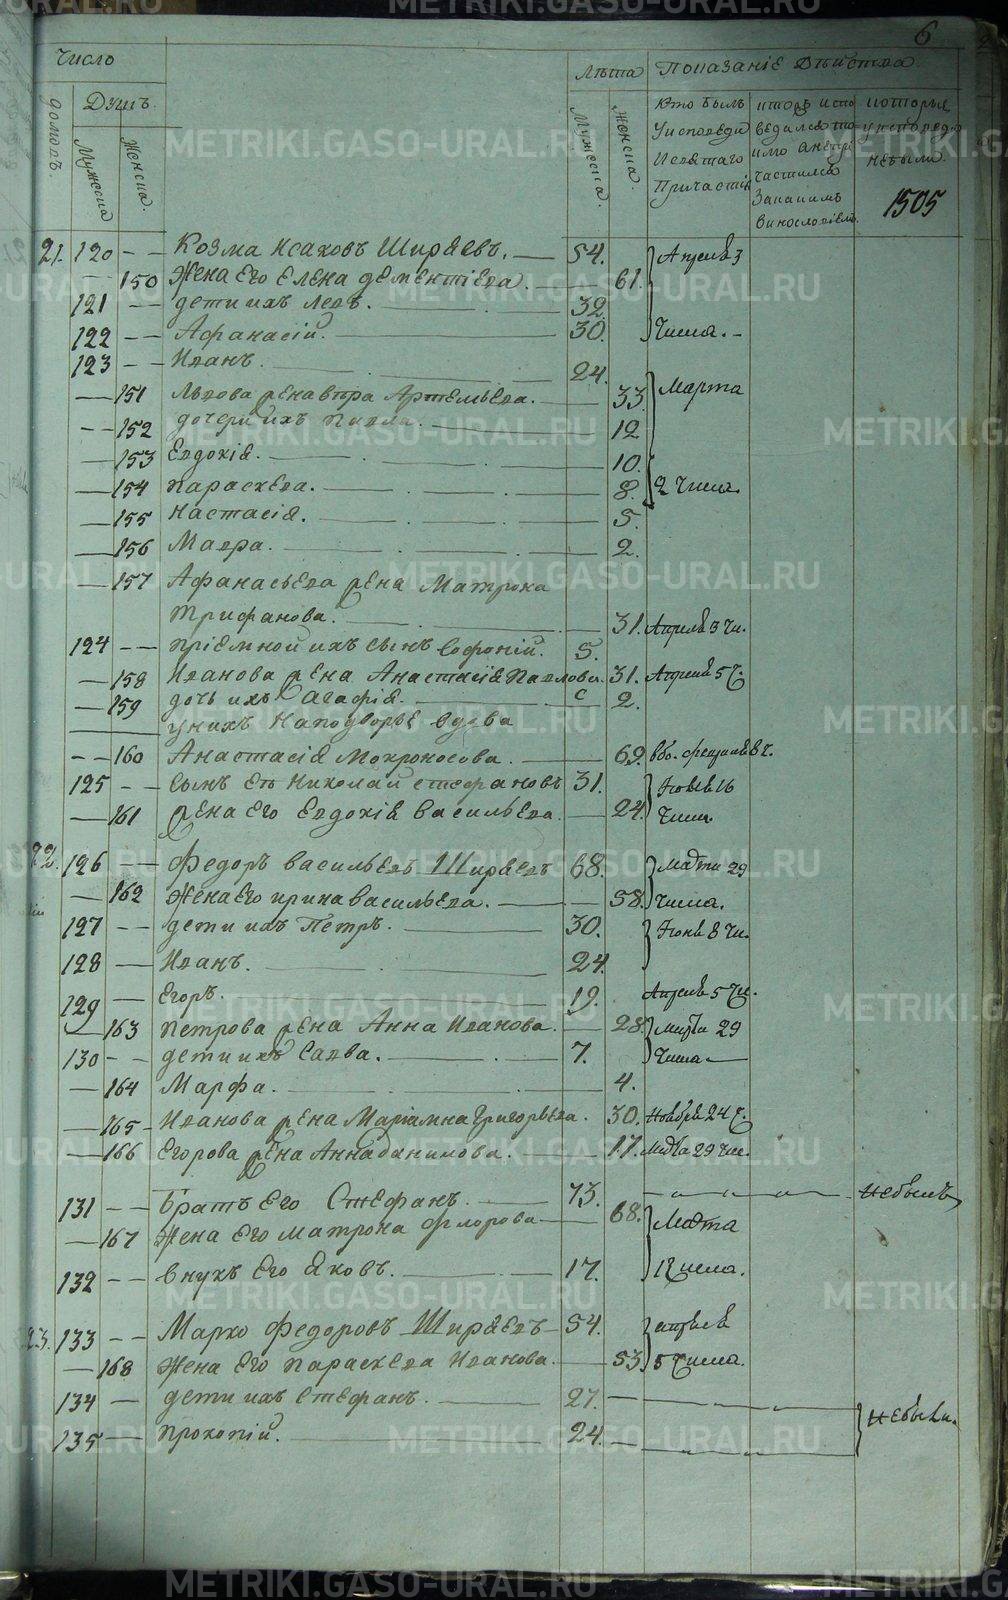 METRIKI.GASO-URAL.RU
6
Число
Лѣта Показаніе дѣйства
домовъ.
Душъ
Мужеска
Женска.
Мужеска
Женска
Кто былъ
у исповеди
и святаго
Причастія
а непричастился
Закакимъ
Винословіемъ
которые
уисповеди
небыли
1505
21. 120 — Козма Исаковъ Ширяевъ. 54. Апреля 3
— 150 Жена Его Елена дементіева. 61.
121 — дети ихъ левъ. 32.
122 — Афанасій. 30. Числа.
123 — Иванъ. 24.
— 151 львова жена Артемьева. 33. Марта
— 152 дочери ихъ 12
— 153 Евдокія. 10.
— 154 Параскева. 8. 2 Числа.
— 155 Настасія. 5.
— 156 Мавра. 2.
— 157 Афанасьева жена Матрона
Трифанова. 31. Апреля 3 чи.
124 — пріемной ихъ сынъ Софоній. 5.
— 158 Иванова жена Анастасія Павлова 31. Апреля 5 ч.
— 159 дочь ихъ Агафія. 2.
унихъ наподворье вдова
— 160 Анастасія Мокроносова. 69.
125 — сынъ Ея Николай стефановъ 31. 16
— 161 жена Его Евдокія васильева. 24. Числа
22. 126 — Федоръ васильевъ Ширяевъ 68. Марта 29
— 162 Жена Его ирина васильева. 58. Числа.
127 — дети ихъ Петръ. 30. Іюня 8 чи.
128 — Иванъ. 24.
129 — Егоръ. 19. Апреля 5 чи.
— 163 Петрова жена Анна Иванова. 28. Марта 29
130 — дети ихъ Савва. 7. Числа
— 164 Марфа. 4.
— 165 Иванова жена Маріамна Григорьева. 30. Ноября 24 ч.
— 166 Егорова жена Анна данилова. 17. Марта 29 чис.
131 — Братъ Его Стефанъ. 73. небылъ
— 167 Жена Его матрона флорова 68. Марта
132 — внукъ Его Яковъ. 17. 1 Числа.
23. 133 — Марко Федоровъ Ширяевъ 54. апреля
— 168 Жена Его Параскева Иванова. 53. 5 Числа.
134 — дети ихъ Стефанъ. 27. небыли.
135 — прокопій. 24.